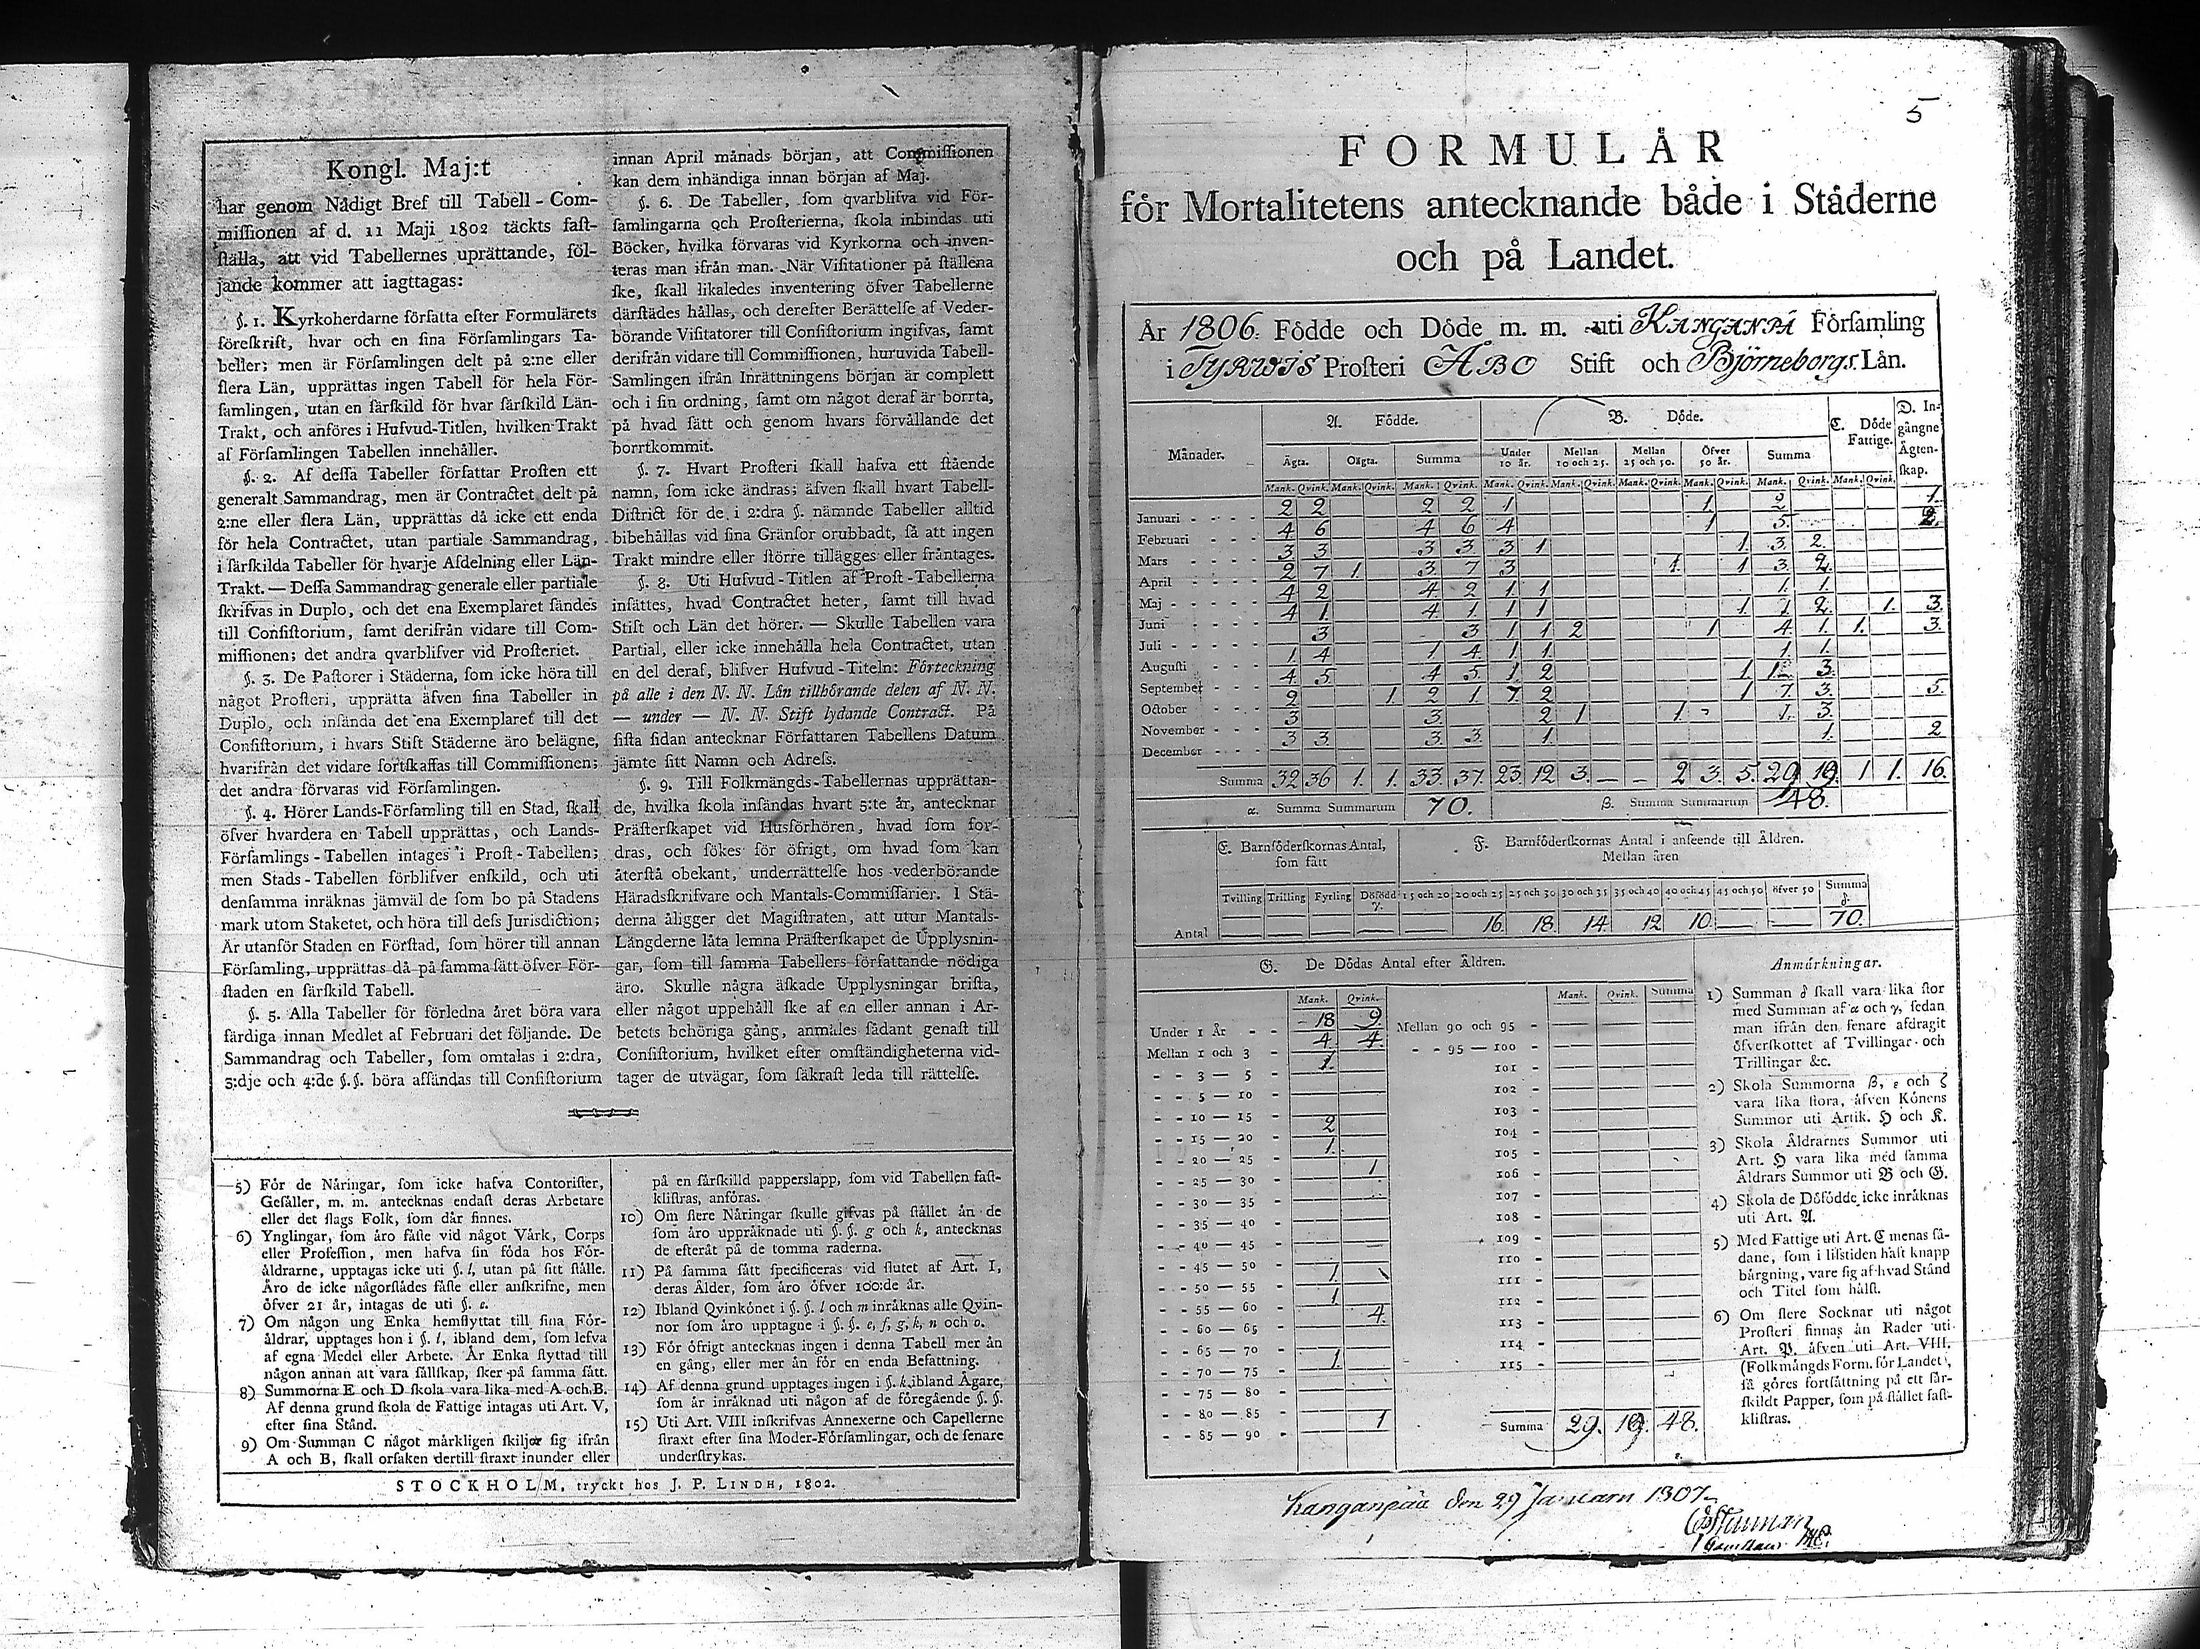 Kongl. Maj:t
har genom Nådigt Bref till Tabell-Com-
missionen af d. 11 Maji 1802 täckts fast-
ställa, att vid Tabellernes uprättande, föl-
jande kommer att iagttagas:
§. 1. Kyrkoherdarne författa efter Formulärets
föreskrift, hvar och en sina Församlingars Ta-
beller; men är Församlingen delt på 2:ne eller
flera Län, upprättas ingen Tabell för hela För-
samlingen, utan en särskild för hvar särskild Län-
Trakt, och anföres i Hufvud-Titlen, hvilken Trakt
af Församlingen Tabellen innehåller.
§. 2. Af dessa Tabeller författar Prosten ett
generalt Sammandrag, men är Contractet delt på
2:ne eller flera Län, upprättas då icke ett enda
för hela Contractet, utan partiale Sammandrag,
i särskilda Tabeller för hvarje Afdelning eller Län-
Trakt. — Dessa Sammandrag generale eller partiale
skrifvas in Duplo, och det ena Exemplaret sändes
till Consistorium, samt derifrån vidare till Com-
missionen; det andra qvarblifver vid Prosteriet.
§. 3. De Pastorer i Städerna, som icke höra till
något Prosteri, upprätta äfven sina Tabeller in
Duplo, och insända det ena Exemplaret till det
Consistorium, i hvars Stift Städerne äro belägne,
hvarifrån det vidare fortskaffas till Commissionen;
det andra förvaras vid Församlingen.
§. 4. Hörer Lands-Församling till en Stad, skall
öfver hvardera en Tabell upprättas, och Lands-
Församlings-Tabellen intages i Prost-Tabellen;
men Stads-Tabellen förblifver enskild, och uti
densamma inräknas jämväl de som bo på Stadens
mark utom Staketet, och höra till dess Jurisdiction;
Är utanför Staden en Förstad, som hörer till annan
Församling, upprättas då på samma sätt öfver För-
staden en särskild Tabell.
§. 5. Alla Tabeller för förledna året böra vara
färdiga innan Medlet af Februari det följande. De
Sammandrag och Tabeller, som omtalas i 2:dra,
3:dje och 4:de §.§. böra afsändas till Consistorium
innan April månads början, att Commissionen
kan dem inhändiga innan början af Maj.
§. 6. De Tabeller, som qvarblifva vid För-
samlingarna och Prosterierna, skola inbindas uti
Böcker, hvilka förvaras vid Kyrkorna och inven-
teras man ifrån man. När Visitationer på ställena
ske, skall likaledes inventering öfver Tabellerne
därstädes hållas, och derefter Berättelse af Veder-
börande Visitatorer till Consistorium ingifvas, samt
derifrån vidare till Commissionen, huruvida Tabell-
Samlingen ifrån Inrättningens början är complett
och i sin ordning, samt om något deraf är borrta,
på hvad sätt och genom hvars förvållande det
borrtkommit.
§. 7. Hvart Prosteri skall hafva ett stående
namn, som icke ändras; äfven skall hvart Tabell-
District för de i 2:dra §. nämnde Tabeller alltid
bibehållas vid sina Gränsor orubbadt, så att ingen
Trakt mindre eller större tillägges eller fråntages.
§. 8. Uti Hufvud-Titlen af Prost-Tabellerna
insättes, hvad Contractet heter, samt till hvad
Stift och Län det hörer. — Skulle Tabellen vara
Partial, eller icke innehålla hela Contractet, utan
en del deraf, blifver Hufvud-Titeln: Förteckning
på alle i den N. N. Län tillhörande delen af N. N.
— under — N. N. Stift lydande Contract. På
sista sidan antecknar Författaren Tabellens Datum
jämte sitt Namn och Adress.
§. 9. Till Folkmängds-Tabellernas upprättan-
de, hvilka skola insändas hvart 5:te år, antecknar
Prästerskapet vid Husförhören, hvad som for-
dras, och sökes för öfrigt, om hvad som kan
återstå obekant, underrättelse hos vederbörande
Häradsskrifvare och Mantals-Commissarier. I Stä-
derna åligger det Magistraten, att utur Mantals-
Längderne låta lemna Prästerskapet de Upplysnin-
gar, som till samma Tabellers författande nödiga
äro. Skulle några äskade Upplysningar brista,
eller något uppehåll ske af en eller annan i Ar-
betets behöriga gång, anmäles sådant genast till
Consistorium, hvilket efter omständigheterna vid-
tager de utvägar, som säkrast leda till rättelse.
5) För de Näringar, som icke hafva Contorister,
Gesäller, m. m. antecknas endast deras Arbetare
eller det slags Folk, som där finnes.
6) Ynglingar, som äro fäste vid något Värk, Corps
eller Profession, men hafva sin föda hos För-
äldrarne, upptagas icke uti §. l, utan på sitt ställe.
Äro de icke någorstädes fäste eller anskrifne, men
öfver 21 år, intagas de uti §. e.
7) Om någon ung Enka hemflyttat till sina För-
äldrar, upptages hon i §. l, ibland dem, som lefva
af egna Medel eller Arbete. Är Enka flyttad till
någon annan att vara sällskap, sker på samma sätt.
8) Summorna E och D skola vara lika med A och B.
Af denna grund skola de Fattige intagas uti Art. V,
efter sina Stånd.
9) Om Summan C något märkligen skiljer sig ifrån
A och B, skall orsaken dertill straxt inunder eller
på en särskilld papperslapp, som vid Tabellen fast-
klistras, anföras.
10) Om flere Näringar skulle gifvas på stället än de
som äro uppräknade uti §. §. g och k, antecknas
de efteråt på de tomma raderna.
11) På samma sätt specificeras vid slutet af Art. I,
deras Ålder, som äro öfver 100:de år.
12) Ibland Qvinkönet i §. §. l och m inräknas alle Qvin-
nor som äro upptagne i §. §. e, f, g, k, n och o.
13) För öfrigt antecknas ingen i denna Tabell mer än
en gång, eller mer än för en enda Befattning.
14) Af denna grund upptages ingen i §. k, ibland Ägare,
som är inräknad uti någon af de föregående §. §.
15) Uti Art. VIII inskrifvas Annexerne och Capellerne
straxt efter sina Moder-Församlingar, och de senare
understrykas.
STOCKHOLM, tryckt hos J. P. LINDH, 1802.
5
FORMULÄR
för Mortalitetens antecknande både i Städerne
och på Landet.
År 1806. Födde och Döde m. m. uti KANGANPÄ Församling
i TYRWIS Prosteri ÅBO Stift och Björneborgs Län.
Månader. A. Födde. B. Döde. C. Döde Fattige. D. Ingångne Ägtenskap.
Ägta. Oägta. Summa Under 10 år. Mellan 10 och 25. Mellan 25 och 50. Öfver 50 år. Summa
Mank. Qvink. Mank. Qvink. Mank. Qvink. Mank. Qvink. Mank. Qvink. Mank. Qvink. Mank. Qvink. Mank. Qvink. Mank. Qvink.
Januari 2 2 2 2 1 1 2 1.
Februari 4 6 4 6 4 1 5. 2.
Mars 3 3 3 3 3 1 1. 3. 2.
April 2 7 1. 3 7 3 1. 1 3 2.
Maj 4 2 4 2 1 1 1. 1.
Juni 4 1. 4 1 1 1 1. 1 2. 1. 3.
Juli 3 3 1 1 2 1 4. 1. 1. 3.
Augusti 1 4 1 4 1. 1. 1. 1.
September 4 5 4 5 1. 2 1 1 3.
October 2 1. 2 1 7. 2 1 7. 3. 5.
November 3 3. 2 1 1. 1. 3.
December 3 3. 3. 3. 1. 1. 2
Summa 32 36 1. 1. 33. 37. 23. 12 3. — — 2 3. 5. 29 19. 1 1. 16.
α. Summa Summarum 70. β. Summa Summarum 48.
E. Barnföderskornas Antal, som fått
F. Barnföderskornas Antal i anseende till Åldren.
Mellan åren
Tvilling Trilling Fyrling Dödfödd γ. 15 och 20 20 och 25 25 och 30 30 och 35 35 och 40 40 och 45 45 och 50 öfver 50 Summa δ
Antal — — — — — 16. 18. 14. 12 10. — — 70.
G. De Dödas Antal efter Åldren.
Mank. Qvink. Mank. Qvink. Summa
Under 1 År - - 18 9.
Mellan 1 och 3 - 4. 4.
- - 3 — 5 - 1.
- - 5 — 10 -
- - 10 — 15 - 2
- - 15 — 20 - 1.
- - 20 — 25 - 1
- - 25 — 30 -
- - 30 — 35 -
- - 35 — 40 -
- - 40 — 45 -
- - 45 — 50 - 1.
- - 50 — 55 - 1.
- - 55 — 60 - 4.
- - 60 — 65 -
- - 65 — 70 - 1.
- - 70 — 75 -
- - 75 — 80 -
- - 80 — 85 - 1
- - 85 — 90 -
Mellan 90 och 95 -
- - 95 — 100 -
101 -
102 -
103 -
104 -
105 -
106 -
107 -
108 -
109 -
110 -
111 -
112 -
113 -
114 -
115 -
Summa 29. 19. 48.
Anmärkningar.
1) Summan δ skall vara lika stor
med Summan af α och γ, sedan
man ifrån den senare afdragit
öfverskottet af Tvillingar och
Trillingar &c.
2) Skola Summorna β, ε och ζ
vara lika stora, äfven Könens
Summor uti Artik. H och K.
3) Skola Åldrarnes Summor uti
Art. H vara lika med samma
Åldrars Summor uti B och G.
4) Skola de Dödfödde icke inräknas
uti Art. A.
5) Med Fattige uti Art. C menas så-
dane, som i lifstiden haft knapp
bärgning, vare sig af hvad Stånd
och Titel som hälst.
6) Om flere Socknar uti något
Prosteri finnas än Rader uti
Art. P. äfven uti Art. VIII.
(Folkmängds Form. för Landet),
så göres fortsättning på ett sär-
skildt Papper, som på stället fast-
klistras.
Kanganpää den 29 Januarii 1807.